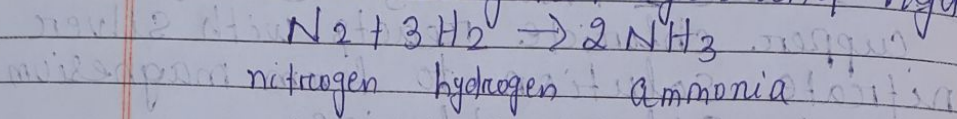 N2 + 3H2 → 2NH3
nitrogen hydrogen ammonia